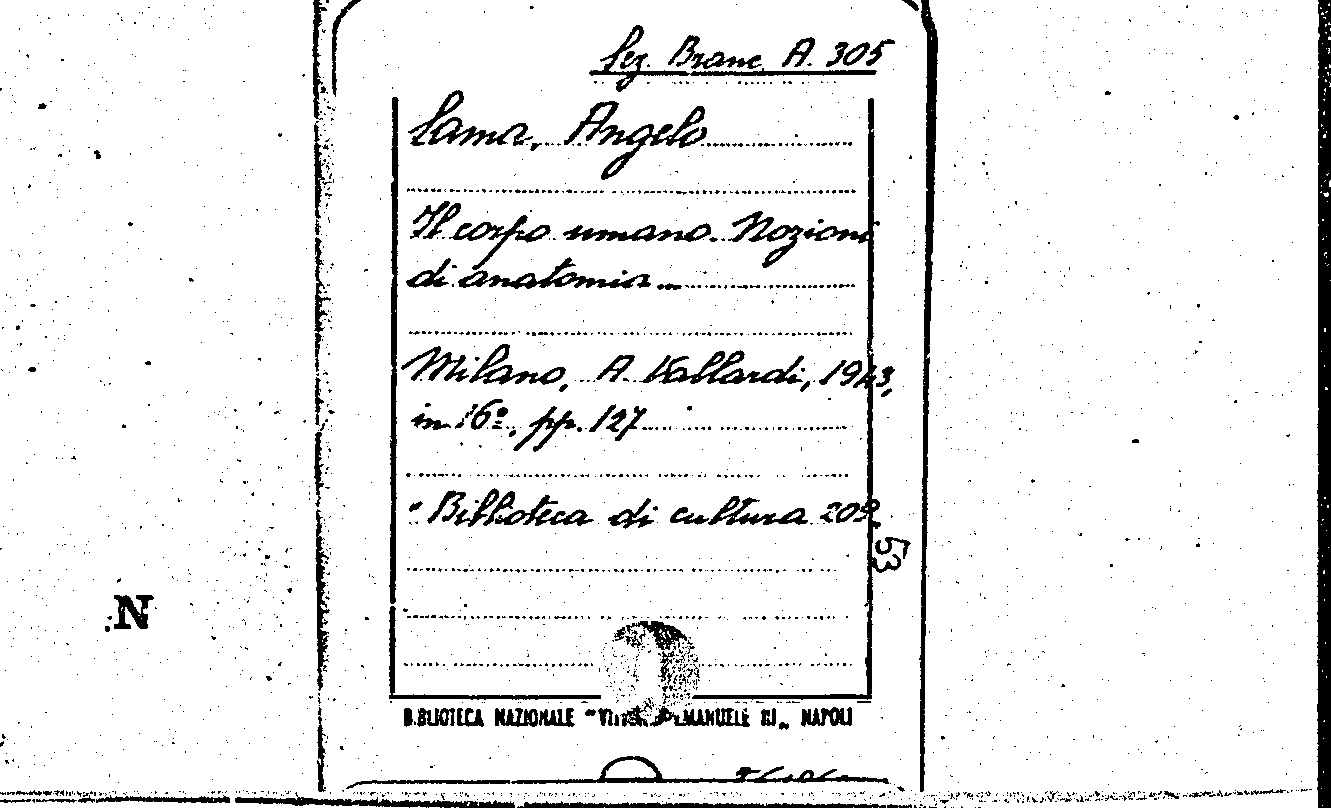 Sez. Branc. A. 305
Lama, Angelo
Il corpo umano. Nozioni
di anatomia...
Milano, A. Vallardi, 1943,
in 16º, pp. 127
" Biblioteca di cultura 209.
53
N
BIBLIOTECA NAZIONALE "VITT. EMANUELE III„ NAPOLI